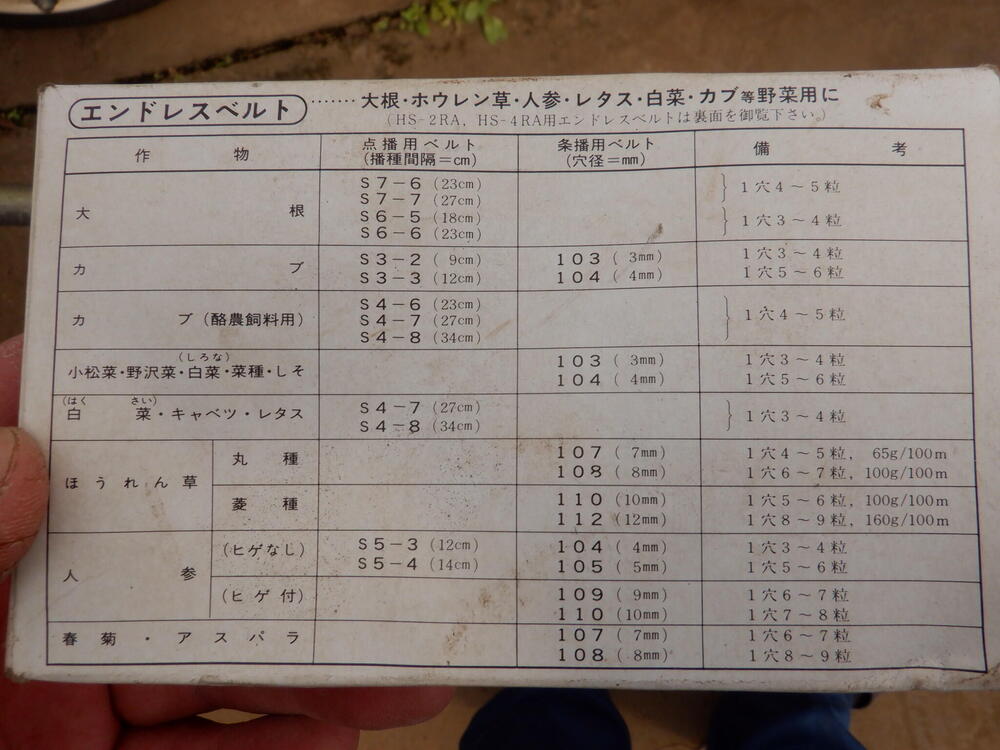 エンドレスベルト ……大根・ホウレン草・人参・レタス・白菜・カブ等野菜用に
(HS-2RA, HS-4RA用エンドレスベルトは裏面を御覧下さい。)
作物 点播用ベルト (播種間隔=cm) 条播用ベルト (穴径=mm) 備考
大根 S7-6 (23cm) 1穴4～5粒
S7-7 (27cm)
S6-5 (18cm) 1穴3～4粒
S6-6 (23cm)
カブ S3-2 ( 9cm) 103 ( 3mm) 1穴3～4粒
S3-3 (12cm) 104 ( 4mm) 1穴5～6粒
カブ(酪農飼料用) S4-6 (23cm) 1穴4～5粒
S4-7 (27cm)
S4-8 (34cm)
(しろな)
小松菜・野沢菜・白菜・菜種・しそ 103 ( 3mm) 1穴3～4粒
104 ( 4mm) 1穴5～6粒
(はくさい)
白菜・キャベツ・レタス S4-7 (27cm) 1穴3～4粒
S4-8 (34cm)
ほうれん草 丸種 107 ( 7mm) 1穴4～5粒, 65g/100m
108 ( 8mm) 1穴6～7粒, 100g/100m
菱種 110 (10mm) 1穴5～6粒, 100g/100m
112 (12mm) 1穴8～9粒, 160g/100m
人参 (ヒゲなし) S5-3 (12cm) 104 ( 4mm) 1穴3～4粒
S5-4 (14cm) 105 ( 5mm) 1穴5～6粒
(ヒゲ付) 109 ( 9mm) 1穴6～7粒
110 (10mm) 1穴7～8粒
春菊・アスパラ 107 ( 7mm) 1穴6～7粒
108 ( 8mm) 1穴8～9粒